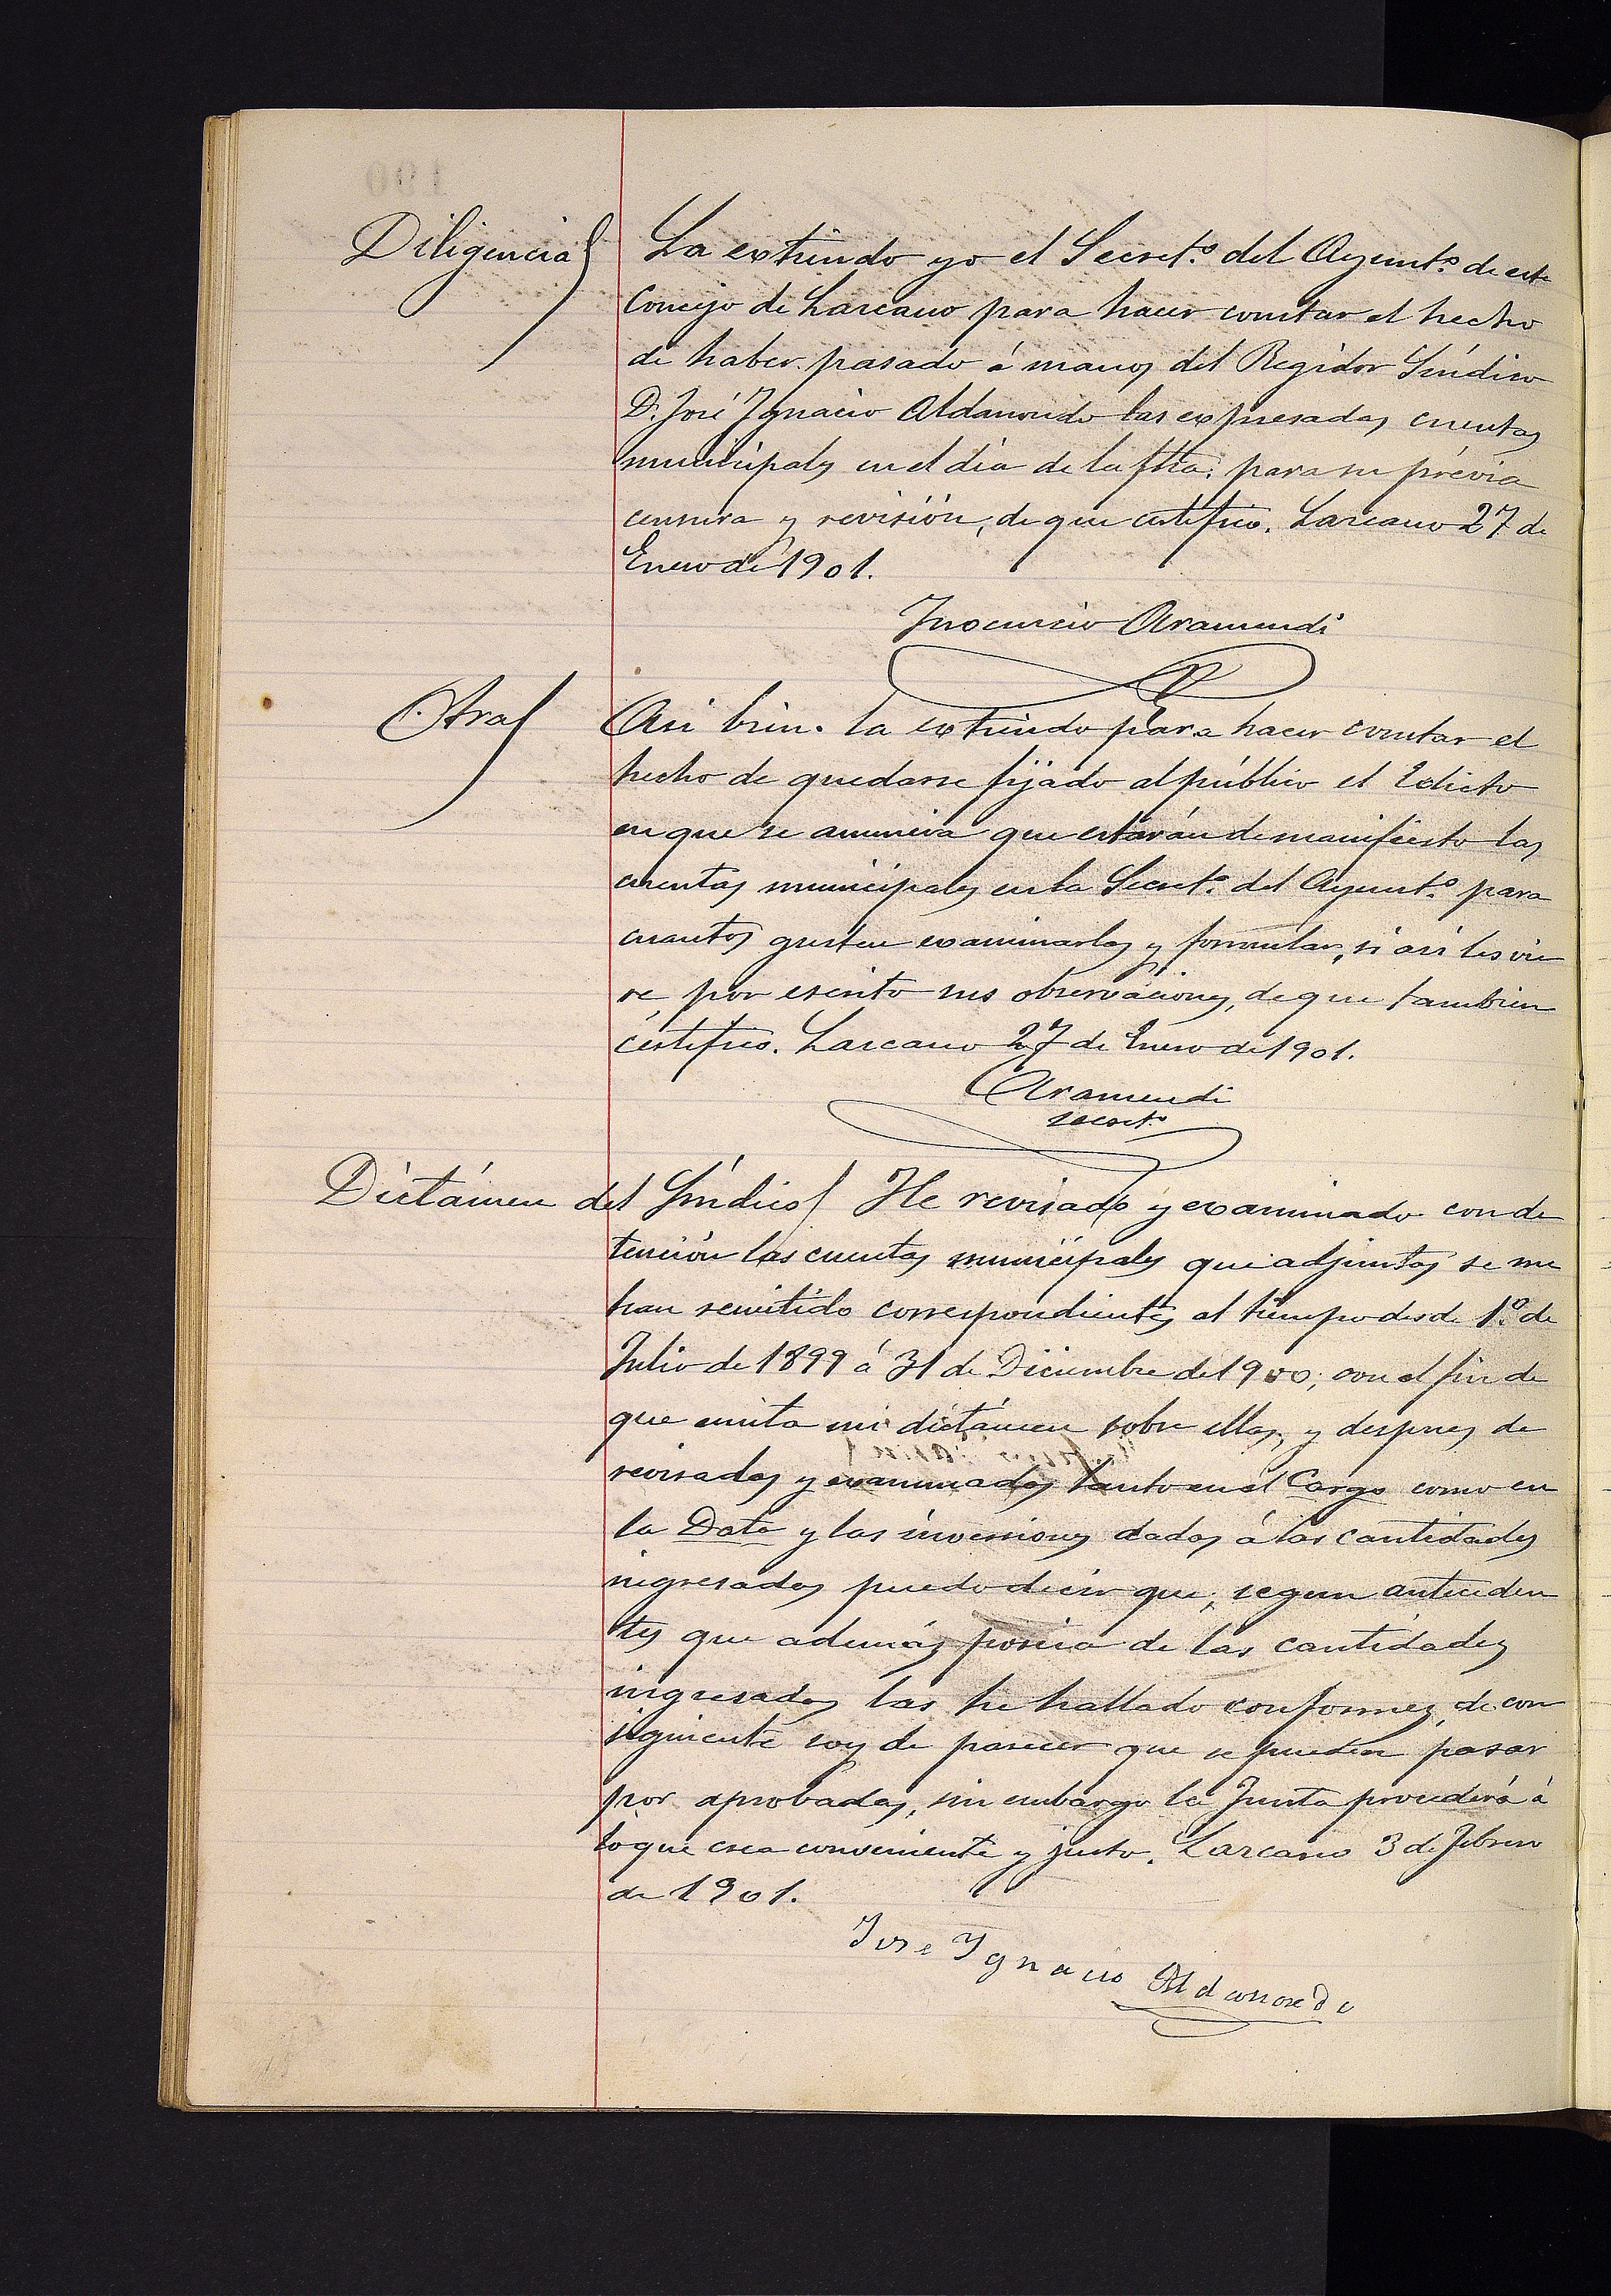 Diligencia La extiendo yo el Secret.º del Ayunt.º de este
Concejo de Lazcano para hacer constar el hecho
de haber pasado á manos del Regidor Síndico
D. José Ignacio Aldanondo las expresadas cuentas
municipales en el día de la fha. para su prévia
censura y revisión, de que certifico. Lazcano 27 de
Enero de 1901.
Inocencio Aramendi
Otra Asi bien la extiendo para hacer constar el
hecho de quedarse fijado al público el Edicto
en que se anuncia que estarán de manifiesto las
cuentas municipales en la Secret.ª del Ayunt.º para
cuantos gusten examinarlas y formular, si asi les vie
re por escrito sus observaciones, de que tambien
certifico. Lazcano 27 de Enero de 1901.
Aramendi
secret.º
Dictámen del Síndico He revisado y examinado con de
tención las cuentas municipales que adjuntas se me
han remitido correspondientes al tiempo desde 1.º de
Julio de 1899 á 31 de Diciembre de 1900; con el fin de
que emita mi dictámen sobre ellas, y despues de
revisadas y examinadas tanto en el Cargo como en
la Data y las inversiones dadas á las cantidades
ingresadas puedo decir que, segun anteceden
tes que además poseia de las cantidades
ingresadas las he hallado conformes, de con
siguiente soy de parecer que se pueden pasar
por aprobadas, sin embargo la Junta procederá á
lo que crea conveniente y justo. Lazcano 3 de Febrero
de 1901.
Jose Ygnacio Aldanondo